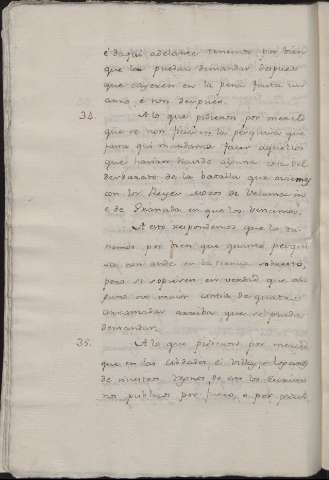 é daqui adelante tenemos por bien
que los puedan demandar despues
que cayeren en la pena fasta un
año, é non despues.
34. A lo que pidieron por merced
que se non ficiese la pesquisa que
fasta aqui mandamos facer aquellos
que havian alguna cosa del
desbarato de la batalla que ovimos
con los Reyes Moros de Velamarin
é de Granada en que los vencimos.
A esto respondemos que lo te-
nemos por bien que quanto pesqui-
sa non ande en la tierra sobresto,
pero si sopieren en verdad que al-
guno ovo mayor contia de quatro
arriba que se pueda
demandar.
35. A lo que pidieron por merced
que en las Cibdades é Villas, é logares
de nuestros regnos do son los Escriva-
nos publicos por fuero, o por previl